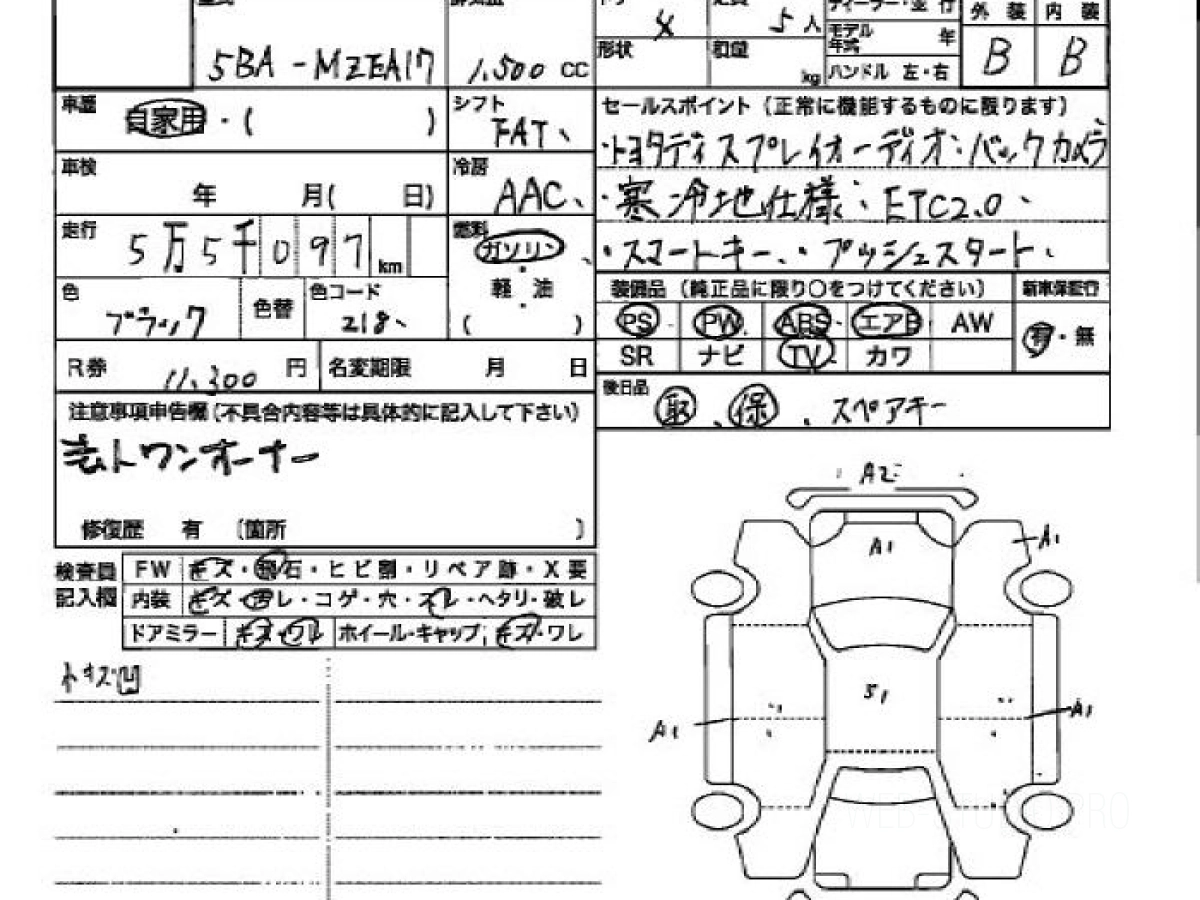 4 5人
外装 内装
モデル年式 年
5BA-MZEA17 1,500 cc 形状 kg ハンドル 左・右 B B
車歴 自家用・( ) シフト FAT、 セールスポイント(正常に機能するものに限ります)
・トヨタディスプレイオーディオ:バックカメラ
車検 年 月( 日) 冷房 AAC、 ・寒冷地仕様: ETC2.0、
走行 5万5千097km 燃料 ガソリン、 ・スマートキー、・プッシュスタート、
軽油
( )
色 ブラック 色替 色コード 218、 装備品(純正品に限り○をつけてください) 新車保証書
PS PW ABS エアB AW 有・無
SR ナビ TV カワ
R券 11,300円 名変期限 月 日 後日品 取、保、スペアキー
注意事項申告欄(不具合内容等は具体的に記入して下さい)
ワンオーナー
修復歴 有 (箇所 )
検査員記入欄 FW キズ・飛石・ヒビ割・リペア跡・X要
内装 キズ・ヨゴレ・コゲ・穴・スレ・ヘタリ・破レ
ドアミラー キズ・ワレ ホイール・キャップ キズ・ワレ
小キズ凹
A2
A1 A1
S1
A1 A1